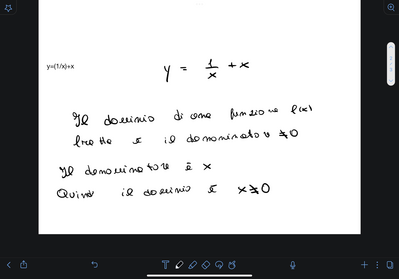 y=(1/x)+x
y = 1/x + x
Il dominio di una funzione f(x)
fratta è il denominatore ≠0
Il denominatore è x
Quindi il dominio è x≠0